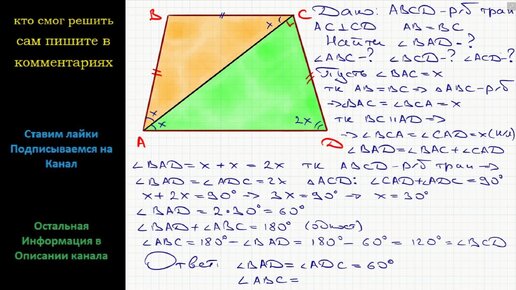 кто смог решить
сам пишите в
комментариях
Ставим лайки
Подписываемся на
Канал
Остальная
Информация в
Описании канала
B
C
x
x
x
x
2x
A
D
Дано: ABCD-р/б трап
AC⊥CD AB=BC
Найти ∠BAD-?
∠ABC-? ∠BCD-? ∠ACD-?
Пусть ∠BAC=x
тк AB=BC ⇒ △ABC-р/б
⇒∠BAC=∠BCA=x
тк BC∥AD ⇒
⇒∠BCA=∠CAD=x(нл)
∠BAD=∠BAC+∠CAD
∠BAD=x+x=2x тк ABCD-р/б трап ⇒
∠BAD=∠ADC=2x △ACD: ∠CAD+∠ADC=90°
x+2x=90° → 3x=90° → x=30°
∠BAD=2·30°=60°
∠BAD+∠ABC=180°
∠ABC=180°-∠BAD=180°-60°=120°=∠BCD
Ответ: ∠BAD=∠ADC=60°
∠ABC=